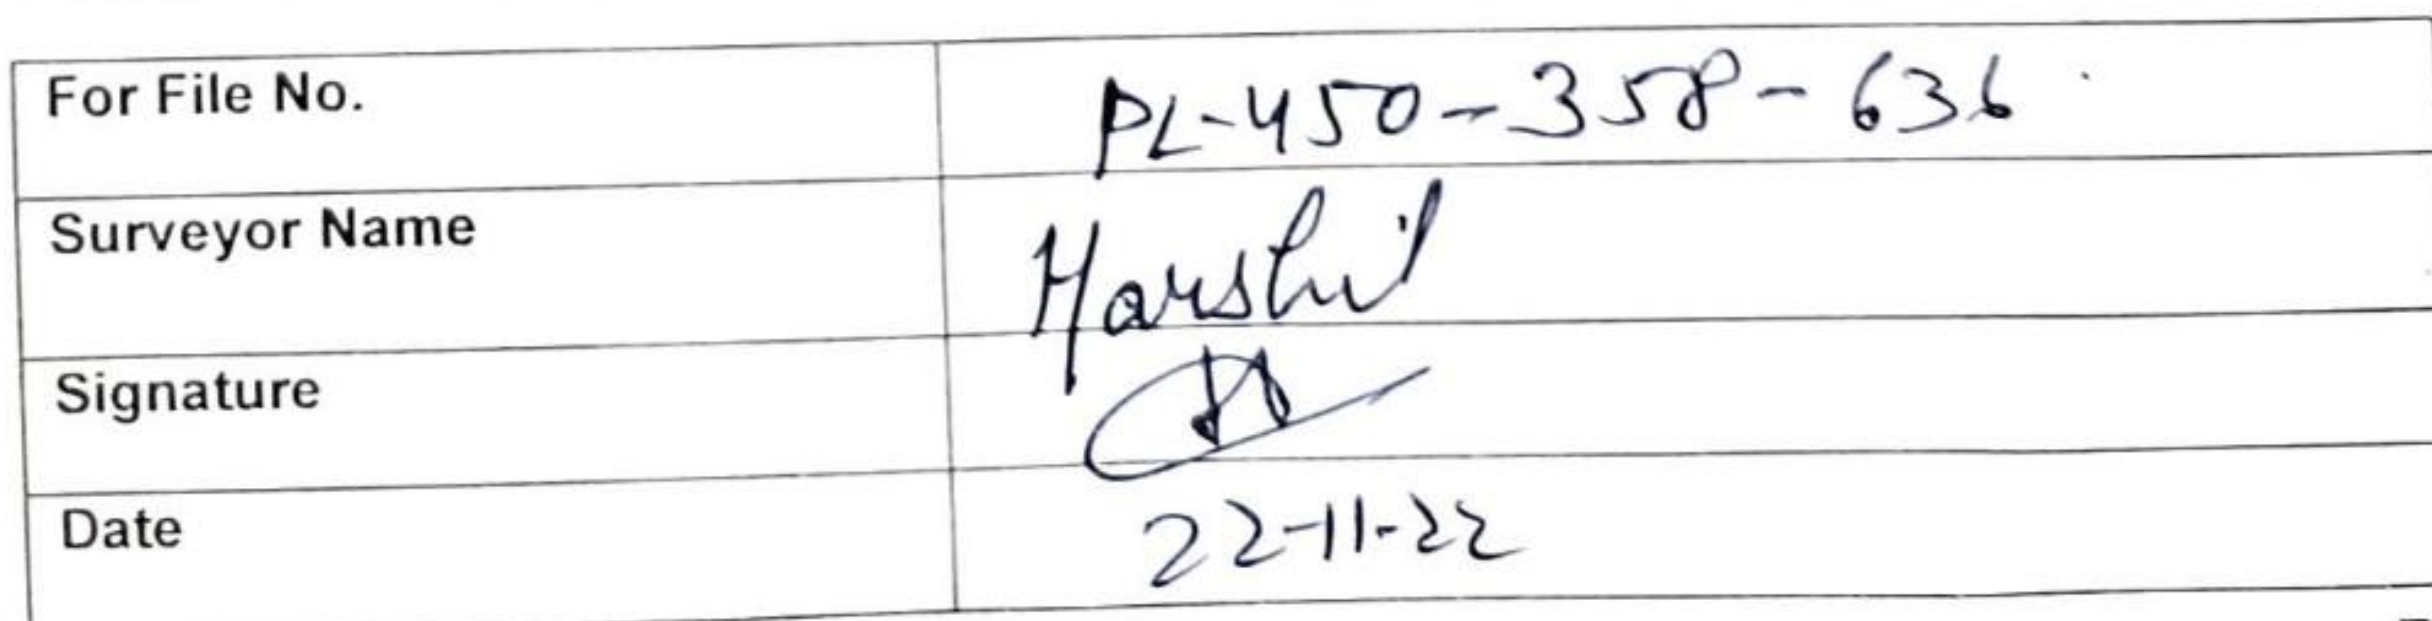 For File No. PL-450-358-636
Surveyor Name Harshil
Signature
Date 22-11-22